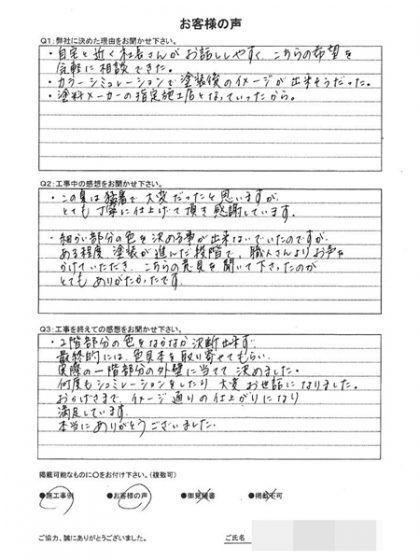 お客様の声
Q1:弊社に決めた理由をお聞かせ下さい。
・自宅と近く社長さんがお話ししやすく、こちらの希望を
気軽に相談できた。
・カラーシュミレーションで塗装後のイメージが出来そうだった。
・塗料メーカーの指定施工店となっていったから。
Q2:工事中の感想をお聞かせ下さい。
・この夏は猛暑で大変だったと思いますが、
とても丁寧に仕上げて頂き感謝しています。
・細かい部分の色を決める事が出来ないでいたのですが、
ある程度塗装が進んだ段階で、職人さんよりお声を
かけていただき、こちらの意見を聞いて下さったのが
とてもありがたかったです。
Q3:工事を終えての感想をお聞かせ下さい。
・2階部分の色をなかなか決断出来ず、
最終的には、色見本を取り寄せてもらい、
実際の一階部分の外壁に当てて決めました。
何度もシュミレーションをしたり大変お世話になりました。
おかげさまで、イメージ通りの仕上がりになり
満足しています。
本当にありがとうございました。
掲載可能なものに○をお付け下さい。(複数可)
●施工事例 ●お客様の声 ●御見積書 ●掲載不可
ご協力、誠にありがとうございました。 ご氏名